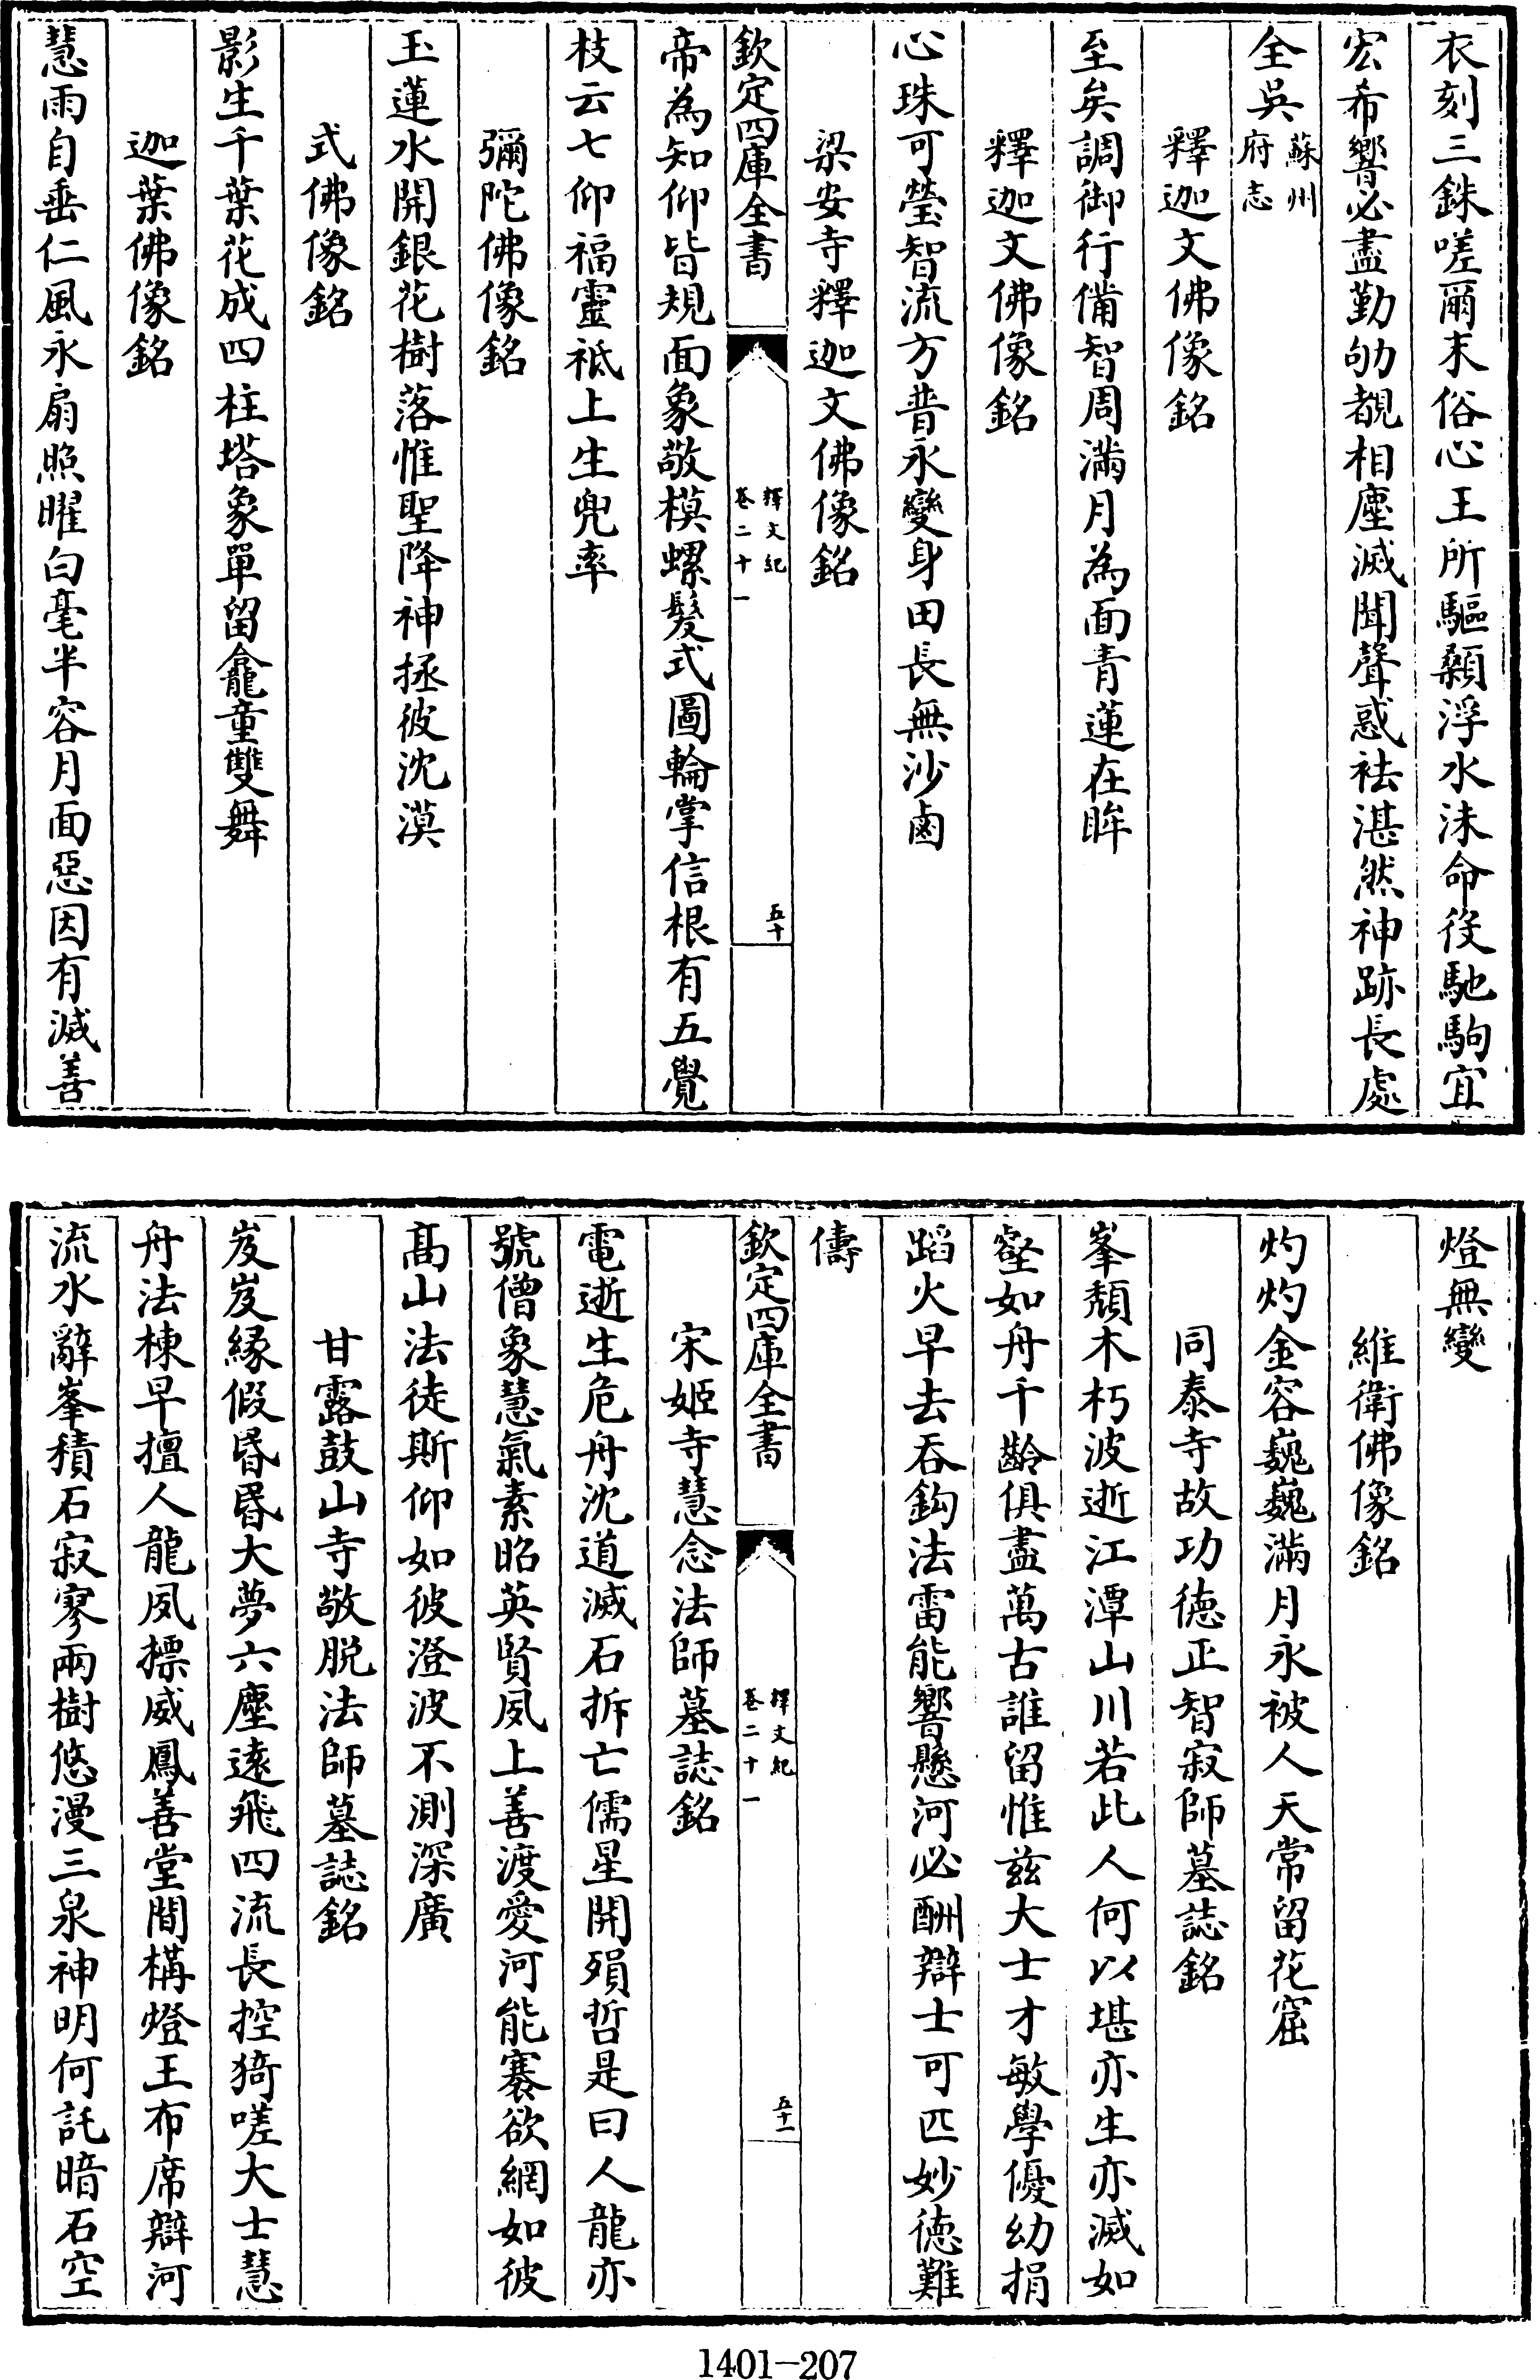 衣刻三銖嗟爾末俗心王所驅顙浮水沫命役馳駒宜
宏希響必盡勤劬覩相塵滅聞聲惑袪湛然神跡長處
全吳蘇州府志
釋迦文佛像銘
至矣調御行備智周滿月為面青蓮在眸
釋迦文佛像銘
心珠可瑩智流方普永變身田長無沙鹵
梁安寺釋迦文佛像銘
欽定四庫全書
釋文紀
卷二十一
五十
帝為知仰皆規面象敬模螺髮式圖輪掌信根有五覺
枝云七仰福靈祇上生兜率
彌陀佛像銘
玉蓮水開銀花樹落惟聖降神拯彼沈漠
式佛像銘
影生千葉花成四柱塔象單留龕童雙舞
迦葉佛像銘
慧雨自垂仁風永扇照曜白毫半容月面惡因有滅善
燈無變
維衛佛像銘
灼灼金容巍巍滿月永被人天常留花窟
同泰寺故功徳正智寂師墓誌銘
峯頹木朽波逝江潭山川若此人何以堪亦生亦滅如
壑如舟千齡俱盡萬古誰留惟兹大士才敏學優幼捐
蹈火早去吞鈎法雷能響懸河必酬辯士可匹妙徳難
儔
欽定四庫全書
釋文紀
卷二十一
五十一
宋姬寺慧念法師墓誌銘
電逝生危舟沈道滅石拆亡儒星開殞哲是曰人龍亦
號僧象慧氣素昭英賢夙上善渡愛河能褰欲網如彼
髙山法徒斯仰如彼澄波不測深廣
甘露鼓山寺敬脱法師墓誌銘
岌岌緣假昏昏大夢六塵遠飛四流長控猗嗟大士慧
舟法棟早擅人龍夙摽威鳳善堂閒構燈王布席辯河
流水辭峯積石寂寥兩樹悠漫三泉神明何託暗石空
1401-207